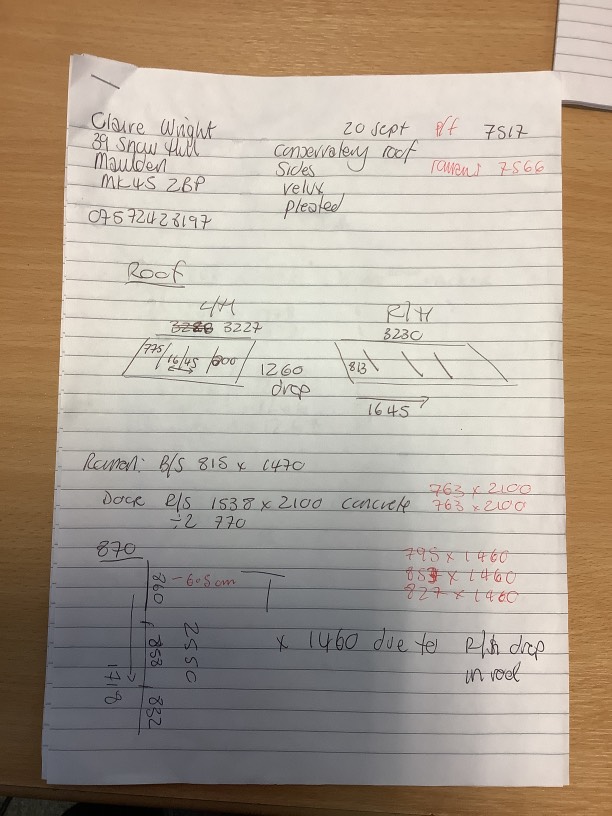 Claire Wright 20 Sept P/f 7517
39 Snow Hill conservatory roof
Maulden Sides 7566
MK45 2BP velux
pleated
07572428197
Roof
L/H R/H
3227 3230
775 1645 800 1260 813
drop
1645
B/S 815 x 1470
Door R/S 1538 x 2100 concrete 763 x 2100
÷2 770 763 x 2100
870 795 x 1460
860 -6.5cm x 1460
827 x 1460
858 2550 x 1460 due to R/H drop
1718 832 in roof